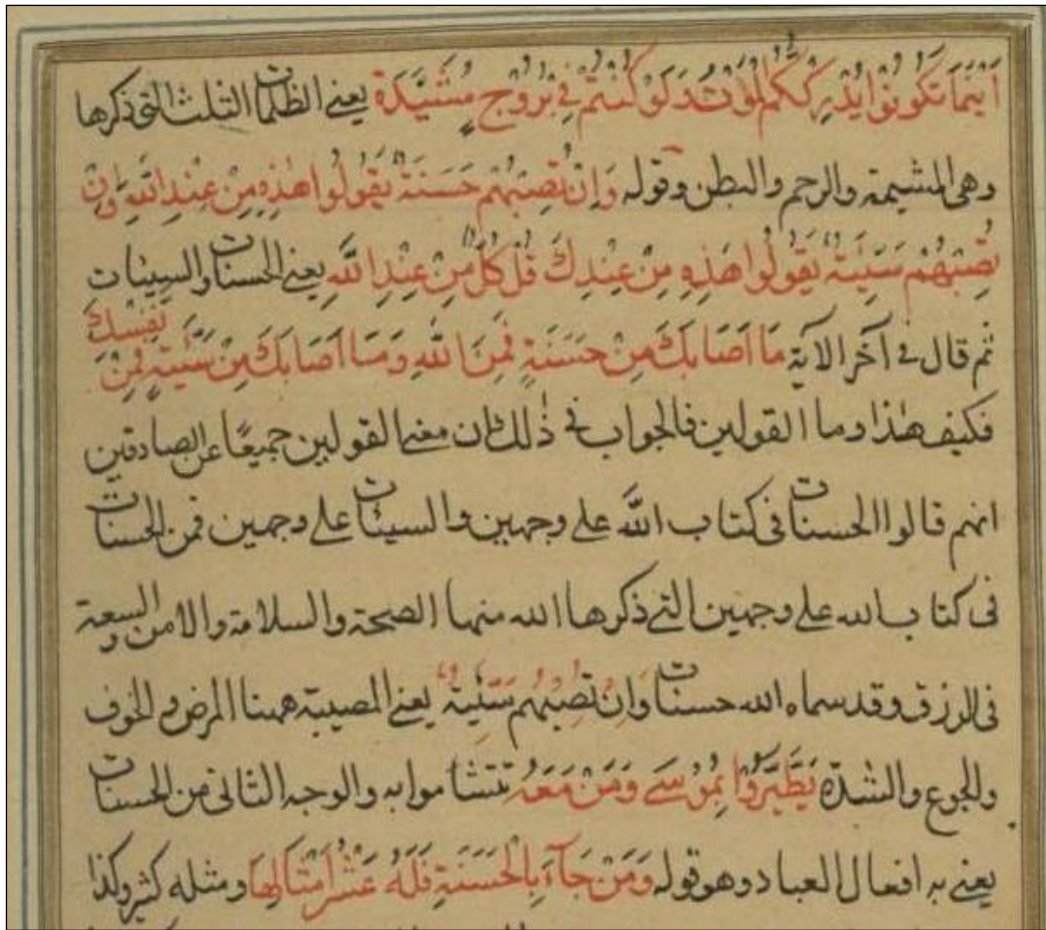 اَيْنَمَا تَكُونُوْا يُدْرِكْكُّمُ الْمَوْتُ وَلَوْ كُنْتُمْ فِيْ بُرُوْجٍ مُشَيَّدَةٍ يعنى الظلمات الثلث التى ذكرها
وهى المشيمة والرحم والبطن وقوله وَاِنْ تُصِبْهُمْ حَسَنَةٌ يَقُولُوا هٰذِهِ مِنْ عِنْدِ اللّٰهِ وَاِنْ
تُصِبْهُمْ سَيِّئَةٌ يَقُولُوا هٰذِهِ مِنْ عِنْدِكَ قُلْ كُلٌّ مِنْ عِنْدِ اللّٰهِ يعنى الحسنات والسيئات
ثم قال فى آخر الاية مَا اَصَابَكَ مِنْ حَسَنَةٍ فَمِنَ اللّٰهِ وَمَا اَصَابَكَ مِنْ سَيِّئَةٍ فَمِنْ نَفْسِكَ
فكيف هٰذا وما القولين فالجواب فى ذٰلك ان معنى القولين جميعًا عن الصادقين
انهم قالوا الحسنات فى كتاب اللّٰه على وجهين والسيئات على وجهين فمن الحسنات
فى كتاب الله على وجهين التى ذكرها الله منها الصحة والسلامة والامن والسعة
فى الرزق وقد سماه الله حسنات وَاِنْ تُصِبْهُمْ سَيِّئَةٌ يعنى المصيبة ههنا المرض والخوف
والجوع والشدّة يَطَّيَّرُوْا بِمُوْسٰى وَمَنْ مَعَهُ تتشاموا به والوجه الثانى من الحسنات
يعنى به افعال العباد وهو قوله وَمَنْ جَآءَ بِالْحَسَنَةِ فَلَهُ عَشْرُ اَمْثَالِهَا ومثله كثير وكذا